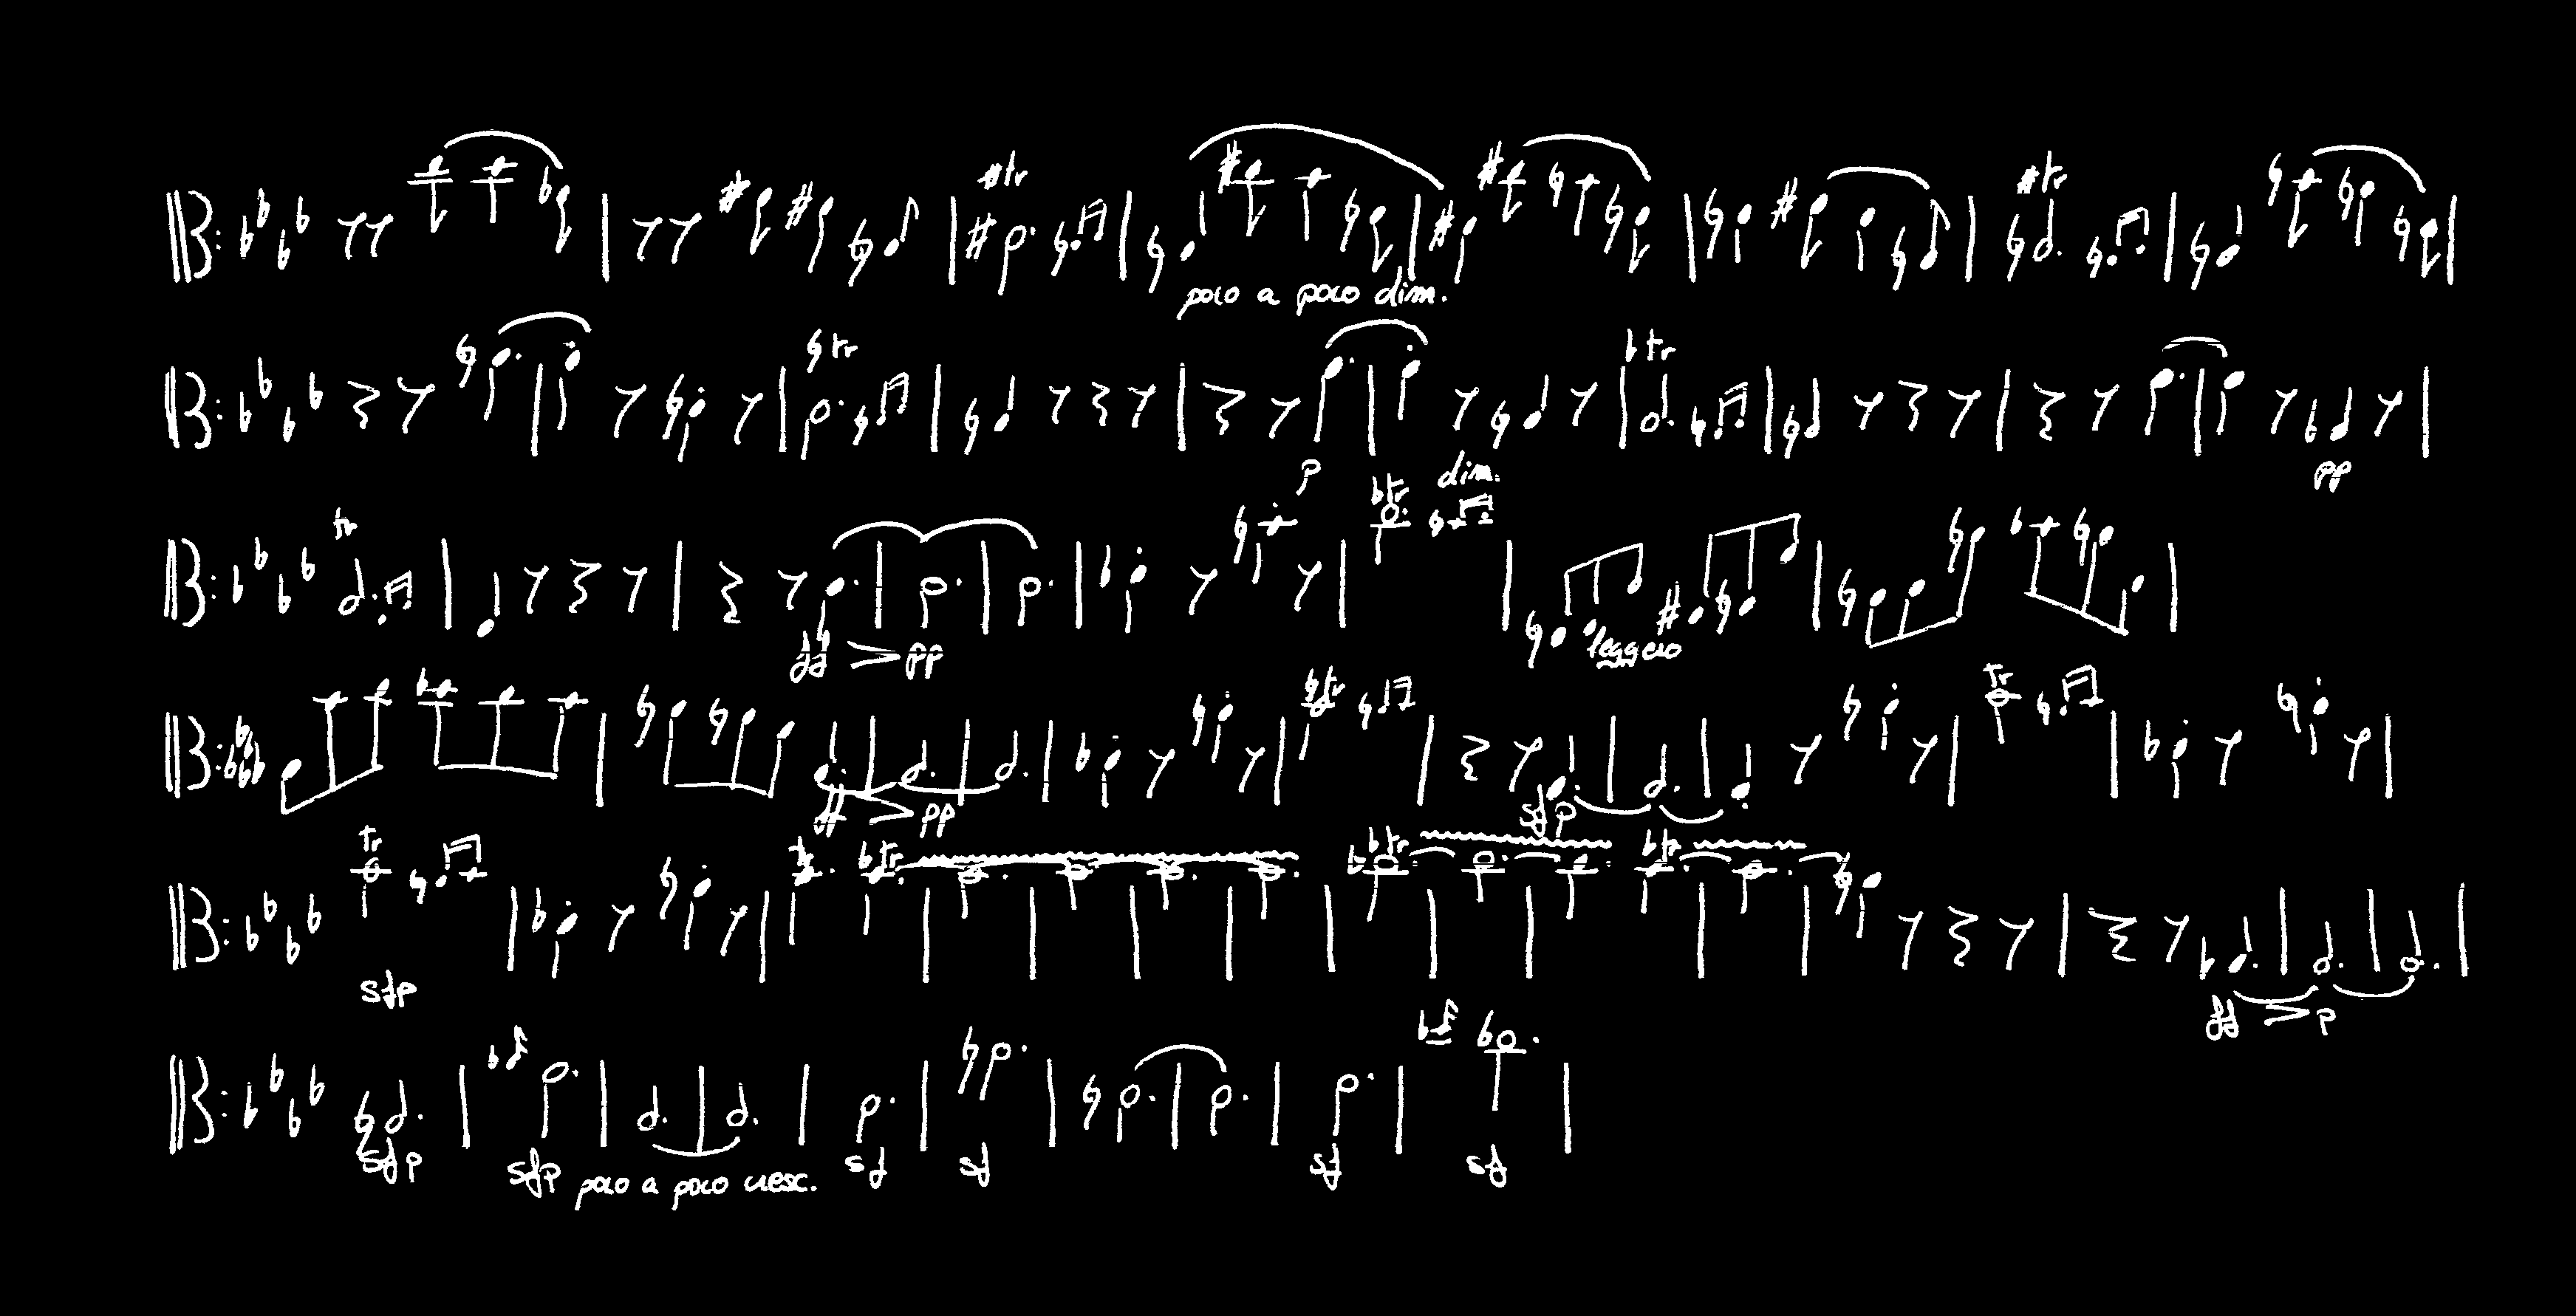 tr tr
poco a poco dim.
tr tr
p dim. pp
tr tr
ff pp leggero
tr tr
ff pp sfp
tr tr tr tr tr
sfp ff p
sfp sfp poco a poco cresc. sf sf sf sf